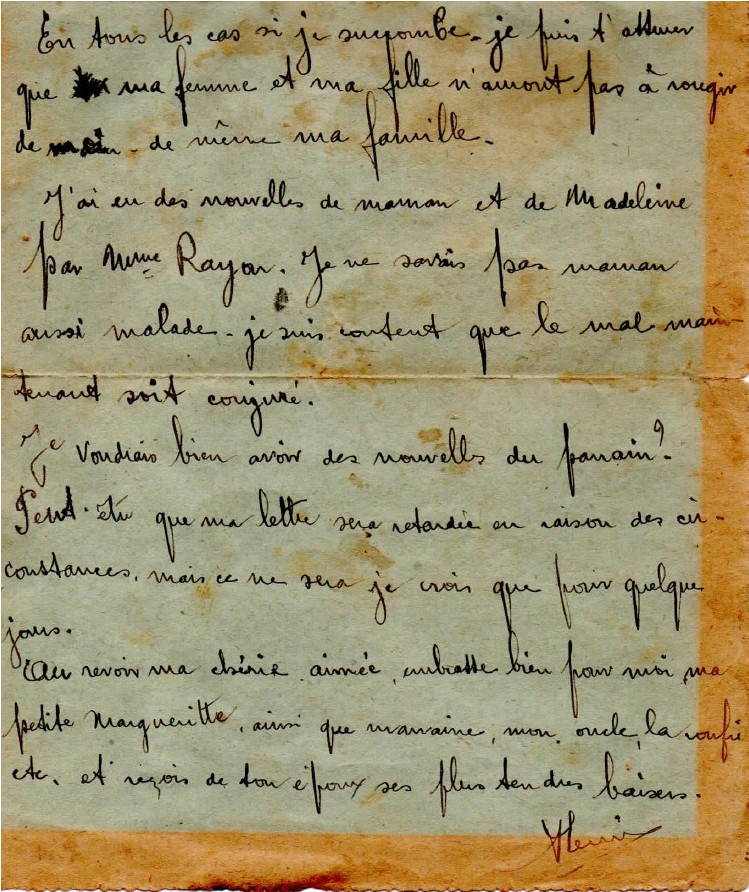 En tous les cas si je succombe - je puis t'assurer
que ma femme et ma fille n'auront pas à rougir
de moi - de même ma famille -
J'ai eu des nouvelles de maman et de Madeleine
par Mme Rayon. Je ne savais pas maman
aussi malade - je suis content que le mal main-
tenant soit conjuré.
Je voudrais bien avoir des nouvelles du parrain ? -
Peut-être que ma lettre sera retardée en raison des cir-
constances, mais ce ne sera je crois que pour quelque
jours.
Au revoir ma chérie aimée, embrasse bien pour moi, ma
petite Margueritte, ainsi que marraine, mon oncle, la
etc, et reçois de ton époux ses plus tendres baisers.
Henri